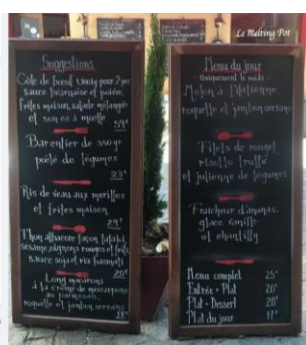 Le Melting Pot
Suggestions
Côte de boeuf pour 2 pers
sauce et poivre,
frites maison, salade mélangée
et son os à moelle
59€
Bar entier de 350 gr
poêlé de légumes
23€
Ris de veau aux morilles
et frites maison
29€
Thon albacore façon tataki,
sésame, oignons rouges et frits
sauce soja et riz basmati
20€
Long macaroni
à la crème de mascarpone
au parmesan,
roquette et jambon serrano
18€
Menu du jour
Uniquement le midi
Melon à l'italienne,
roquette et jambon serrano
Filets de rouget,
risotto truffe
et julienne de légumes
Fraîcheur d'ananas,
glace vanille
et chantilly
Menu complet 25€
Entrée + Plat 20€
Plat + Dessert 20€
Plat du jour 17€